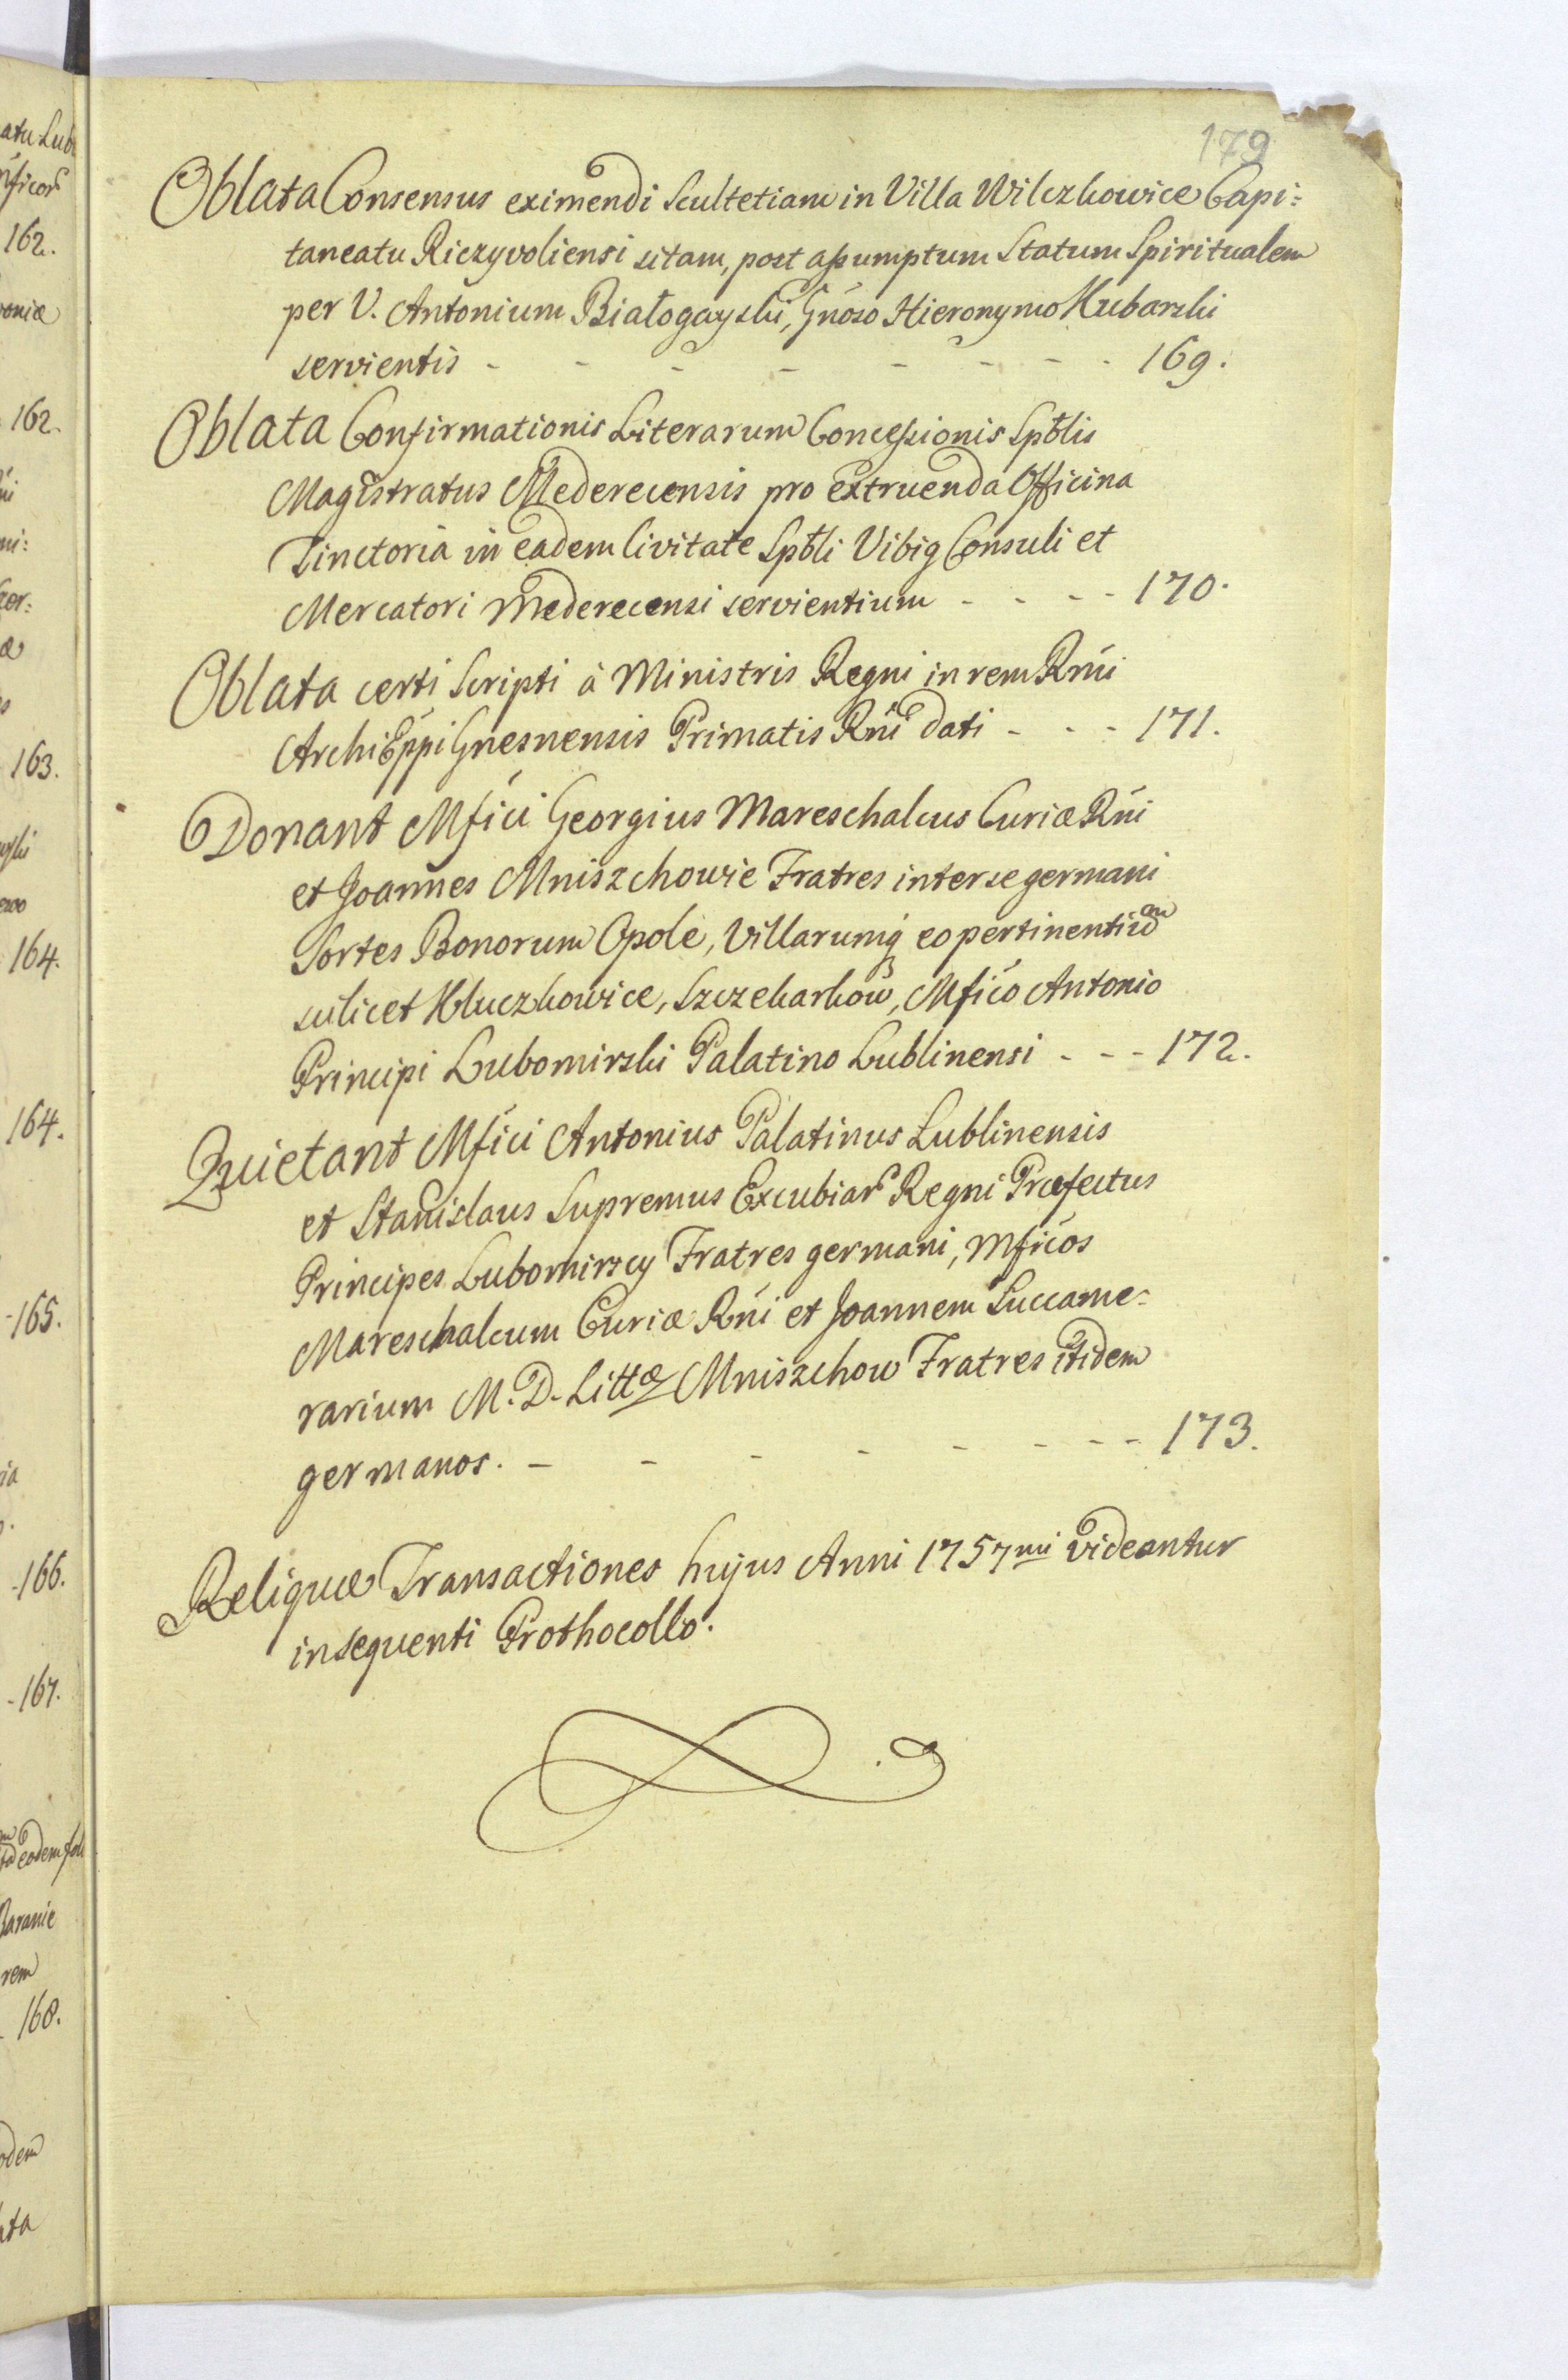 179
Oblata Consensus eximendi Scultetiam in Villa Wilczkowice Capi:
taneatu Riczyvoliensi sitam, post assumptum Statum Spiritualem
per V. Antonium Białogayski, Gnoso Hieronymo Kubarski
servientis - - - - - - - - 169.
Oblata Confirmationis Literarum Concessionis Spblis
Magistratus Mederecensis pro extruenda Officina
Tinctoria in eadem Civitate Spbli Vibig Consuli et
Mercatori Mederecensi servientium - - - - 170.
Oblata certi Scripti à Ministris Regni in rem Rmi
ArchiEppi Gnesnensis Primatis Rni dati - - - 171.
Donant Mfici Georgius Mareschalcus Curiæ Rni
et Joannes Mniszchowie Fratres inter se germani
Sortes Bonorum Opole, Villarumq eo pertinentium
scilicet Kluczkowice, Szczekarkow, Mfico Antonio
Principi Lubomirski Palatino Lublinensi - - - 172.
Quietant Mfici Antonius Palatinus Lublinensis
et Stanislaus Supremus Excubiar Regni Præfectus
Principes Lubomirscy Fratres germani, Mficos
Mareschalcum Curiæ Rni et Joannem Succame:
rarium M. D. Littæ Mniszchow Fratres itidem
germanos. - - - - - - - - 173.
Reliquæ Transactiones hujus Anni 1757mi videantur
in sequenti Prothocollo.
162.
162.
163.
164.
164.
165.
166.
167.
eodem
168.